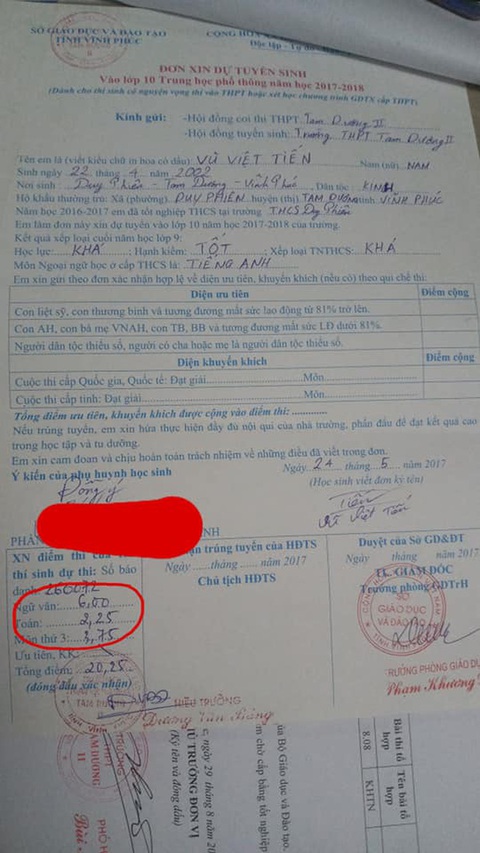 SỞ GIÁO DỤC VÀ ĐÀO TẠO
TỈNH VĨNH PHÚC
CỘNG HÒA
Độc lập - Tự do
ĐƠN XIN DỰ TUYỂN SINH
Vào lớp 10 Trung học phổ thông năm học 2017-2018
(Dành cho thí sinh có nguyện vọng thi vào THPT hoặc xét học chương trình GDTX cấp THPT)
Kính gửi: -Hội đồng coi thi THPT Tam Dương II
-Hội đồng tuyển sinh: Trường THPT Tam Dương II
Tên em là (viết kiểu chữ in hoa có dấu): VŨ VIỆT TIẾN Nam (nữ): NAM
Sinh ngày 22 tháng 4 năm 2002
Nơi sinh: Duy Phiên - Tam Dương - Vĩnh Phúc, Dân tộc: KINH
Hộ khẩu thường trú: Xã (phường) DUY PHIÊN huyện (thị) TAM DƯƠNG tỉnh VĨNH PHÚC
Năm học 2016-2017 em đã tốt nghiệp THCS tại trường THCS Duy Phiên
Em làm đơn này xin dự tuyển vào lớp 10 năm học 2017-2018 của trường.
Kết quả xếp loại cuối năm học lớp 9:
Học lực: KHÁ; Hạnh kiểm: TỐT; Xếp loại TNTHCS: KHÁ
Môn Ngoại ngữ học ở cấp THCS là: TIẾNG ANH
Em xin gửi theo đơn xác nhận hợp lệ về diện ưu tiên, khuyến khích (nếu có) theo qui chế thi:
Diện ưu tiên Điểm cộng
Con liệt sỹ, con thương binh và tương đương mất sức lao động từ 81% trở lên.
Con AH, con bà mẹ VNAH, con TB, BB và tương đương mất sức LĐ dưới 81%.
Người dân tộc thiểu số, người có cha hoặc mẹ là người dân tộc thiểu số.
Diện khuyến khích Điểm cộng
Cuộc thi cấp Quốc gia, Quốc tế: Đạt giải Môn
Cuộc thi cấp tỉnh: Đạt giải Môn
Tổng điểm ưu tiên, khuyến khích được cộng vào điểm thi:
Nếu trúng tuyển, em xin hứa thực hiện đầy đủ nội qui của nhà trường, phấn đấu để đạt kết quả cao
trong học tập và tu dưỡng.
Em xin cam đoan và chịu hoàn toàn trách nhiệm về những điều đã viết trong đơn.
Ý kiến của phụ huynh học sinh Ngày 24 tháng 5 năm 2017
Đồng ý
(Học sinh viết đơn ký tên)
Tiến
Vũ Việt Tiến
PHẦN
XN điểm thi của
thí sinh dự thi: Số báo
danh 260072
Ngữ văn: 6,00
Toán: 2,25
Môn thứ 3: 3,75
Ưu tiên, KK:
Tổng điểm: 20,25
(đóng dấu xác nhận)
trúng tuyển của HĐTS
Ngày tháng năm 2017
Chủ tịch HĐTS
Duyệt của Sở GD&ĐT
Ngày tháng năm 2017
TL. GIÁM ĐỐC
Trưởng phòng GDTrH
SỞ
GIÁO DỤC
VÀ ĐÀO
TRƯỞNG PHÒNG GIÁO DỤ
Phạm Khương
HIỆU TRƯỞNG
TAM DƯƠNG
ngày 29 tháng 8
TRƯỞNG ĐƠN VỊ
(Ký tên và đóng dấu)
của Bộ Giáo dục và Đào tạo.
chờ cấp bằng tốt nghiệp
Bài thi tổ hợp
Tên bài tổ hợp
8.08
KHTN